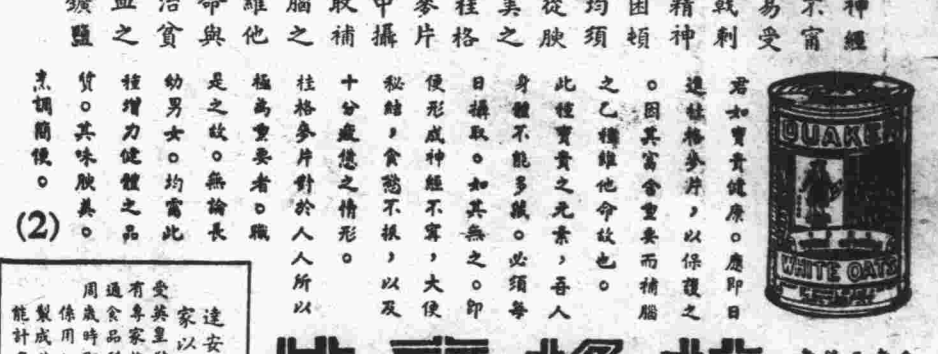 神經
不甯
易受
戟刺
精神
困頓
均須
從腴
美之
桂格
麥片
中攝
取補
腦之
維他
命與
治貧
血之
鑛鹽
君如寶貴健康。應即日
進桂格麥片，以保護之
。因其富含重要而補腦
之乙種維他命故也。
此種寶貴之元素，吾人
身體不能多藏。必須每
日攝取。如其無之。即
便形成神經不寗，大便
秘結，食慾不振，以及
十分疲憊之情形。
桂格麥片對於人人所以
極為重要者。職
是之故。無論長
幼男女。均需此
種增力健體之品
質。其味腴美。
烹調簡便。
(2)
QUAKER
WHITE OATS
達安
家以
受英皇
有專家
通食品
周歲時
係用
製成
能計